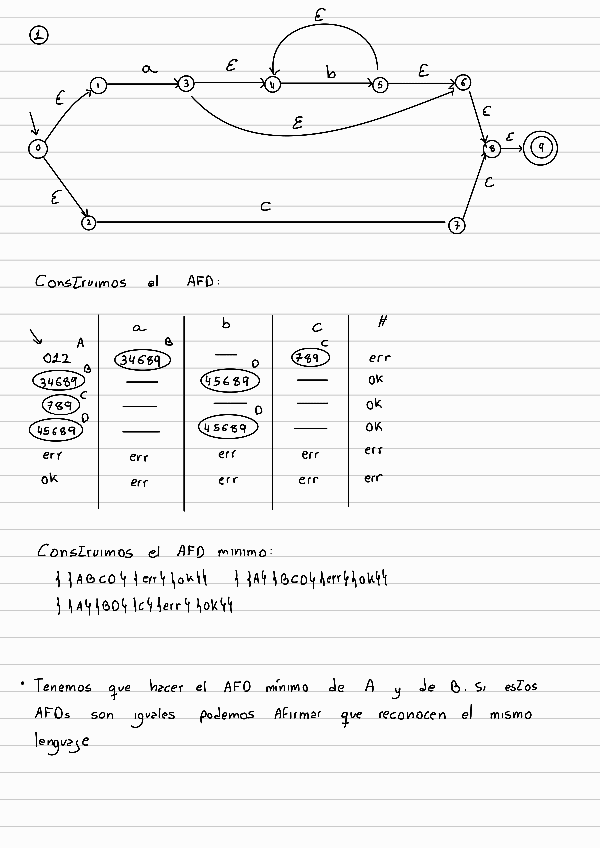 1
ε
a ε b ε
0 1 3 4 5 6 8 9
ε ε ε ε
ε c ε
2 7
Construimos el AFD:
a b c #
A B C
012 34689 — 789 err
B D
34689 — 45689 — ok
C
789 — — — ok
D D
45689 — 45689 — ok
err err err err err
ok err err err err
Construimos el AFD minimo:
{ {ABCD} {err} {ok}} { {A} {BCD} {err} {ok}}
{ {A} {BD} {C} {err} {ok}}
• Tenemos que hacer el AFD mínimo de A y de B. Si estos
AFDs son iguales podemos Afirmar que reconocen el mismo
lenguaje